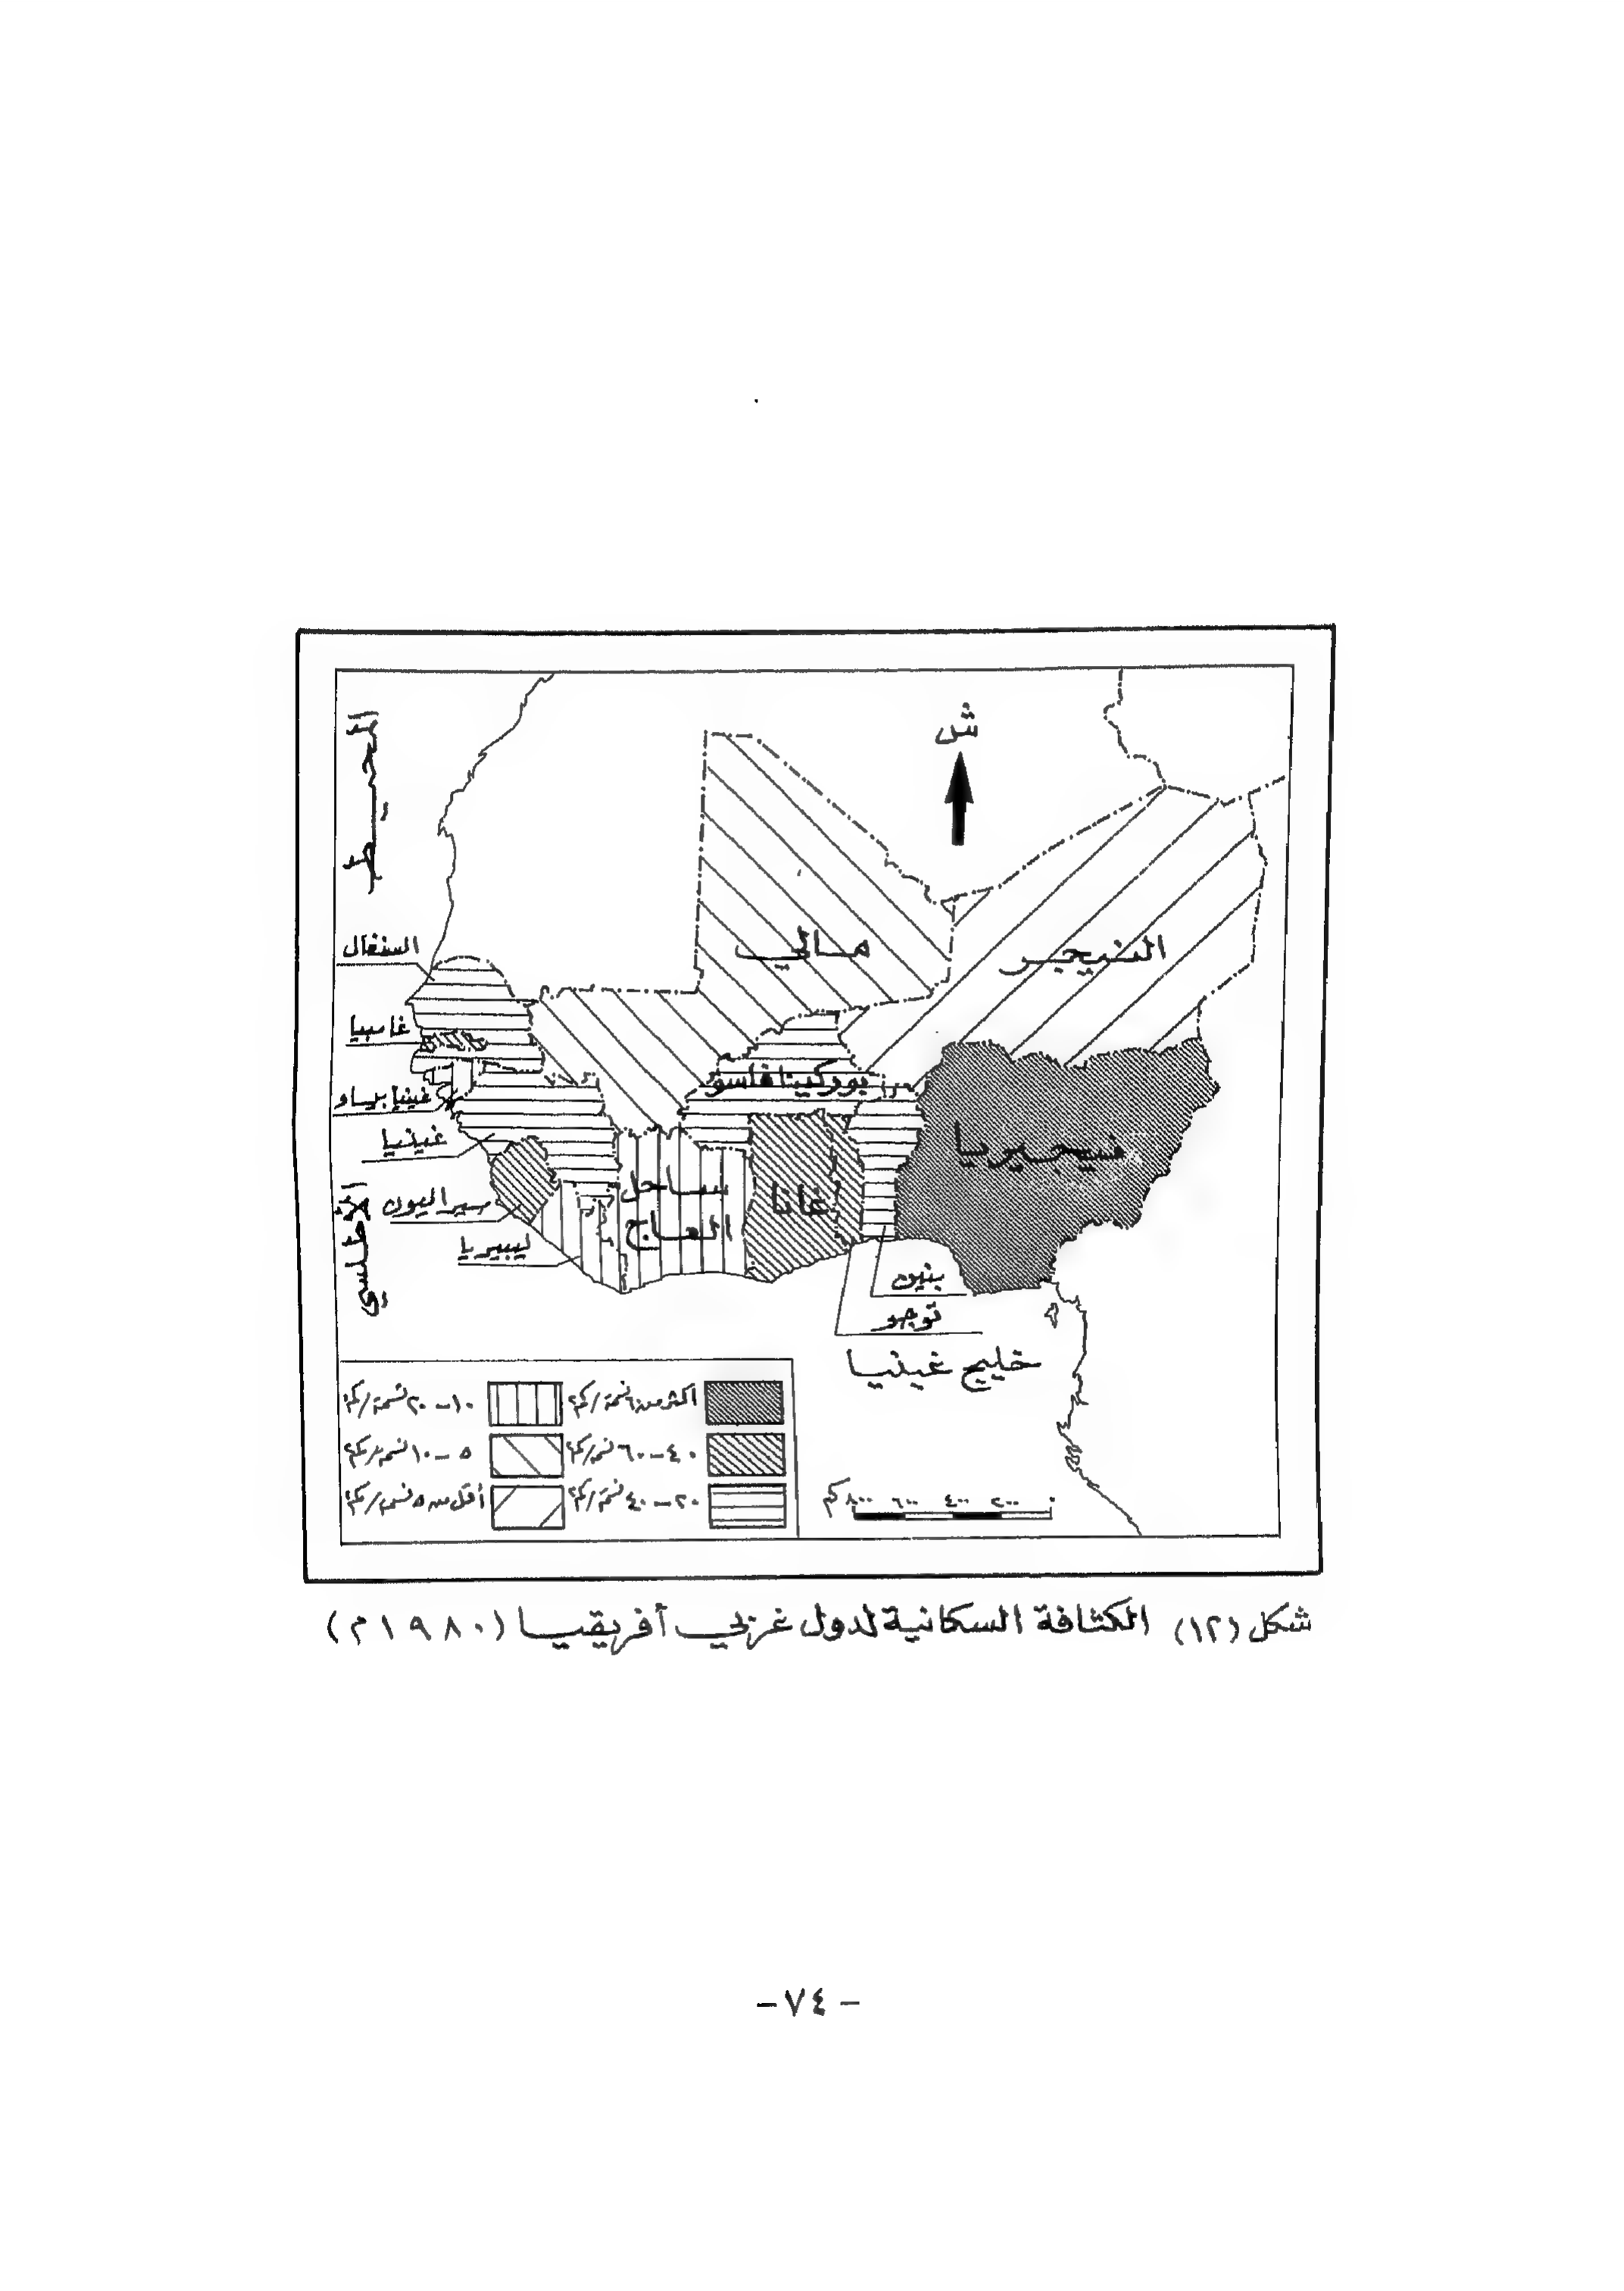 المحيط
ش
مالي
النيجر
السنغال
غامبيا
غينيا بيساو
غينيا
سيراليون
ليبيريا
الأطلسي
بوركينا فاسو
ساحل
العاج
غانا
نيجيريا
بنين
توجو
خليج غينيا
أكثر من ٦٠ نسمة/كم٢
٤٠ - ٦٠ نسمة/كم٢
٢٠ - ٤٠ نسمة/كم٢
١٠ - ٢٠ نسمة/كم٢
٥ - ١٠ نسمة/كم٢
أقل من ٥ نسمة/كم٢
٠ ٢٠٠ ٤٠٠ ٦٠٠ ٨٠٠ كم
شكل (١٢) الكثافة السكانية لدول غربي أفريقيا (١٩٨٠م)
- ٧٤ -